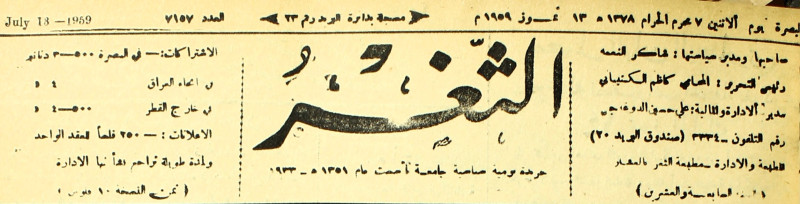 البصرة يوم الاثنين ٧ محرم الحرام ١٣٧٨ ه ١٣ تموز ١٩٥٩ م
مسجلة بدائرة البريد رقم ٢٣
العدد ٧١٥٧
July 13 - 1959
صاحبها ومدير سياستها : شاكر النعمة
رئيس التحرير : المحامي كاظم
مدير الادارة والمالية : علي حسين
رقم التلفون - ٣٣٣٤ (صندوق البريد ٢٠)
الطبعة والادارة - مطبعة الثغر
السابعة والعشرين )
الثغر
جريدة يومية سياسية جامعة تأسست عام ١٣٥١ ه - ١٩٣٣
الاشتراكات :- في البصرة ٥٠٠-٣ دنانير
في انحاء العراق ٤ د
في خارج القطر ٥٠٠-٤ د
الاعلانات :- ٢٥٠ فلساً للعقد الواحد
ولمدة طويلة تراجع بشأنها الادارة
( ثمن النسخة ١٠ فلوس )